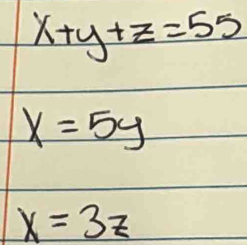 x+y+z=55
x=5y
x=3z